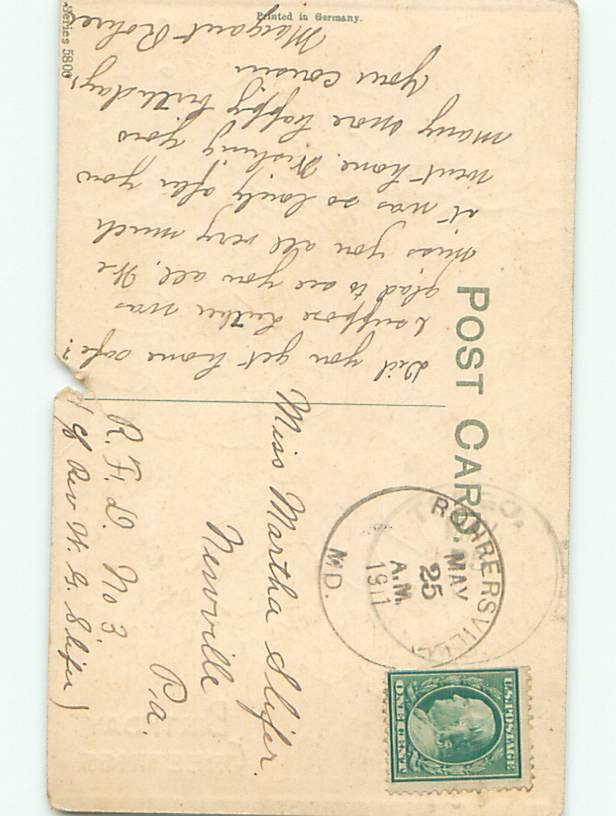 Printed in Germany.
Series 5806
POST CARD.
Did you get home safe?
I suppose Luther was
glad to see you all. We
miss you all very much
it was so lonely after you
went home. Wishing you
many more happy birthdays
Your cousin
Margaret Rohrer
ROHRERSVILLE
MAY
25
A.M.
1911
MD.
U.S. POSTAGE
ONE CENT
Miss Martha Slifer.
Newville
Pa.
R. F. D. No 3
℅ Rev W. G. Slifer)
BIRTHDAY
GREETINGS